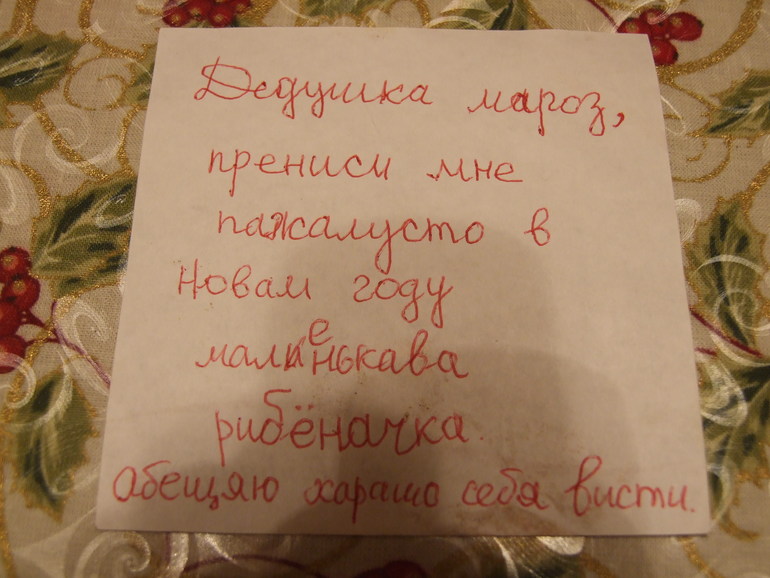 Дедушка мароз,
прениси мне
пажалусто в
Новам году
маленькава
рибёначка.
абещяю харашо себя висти.